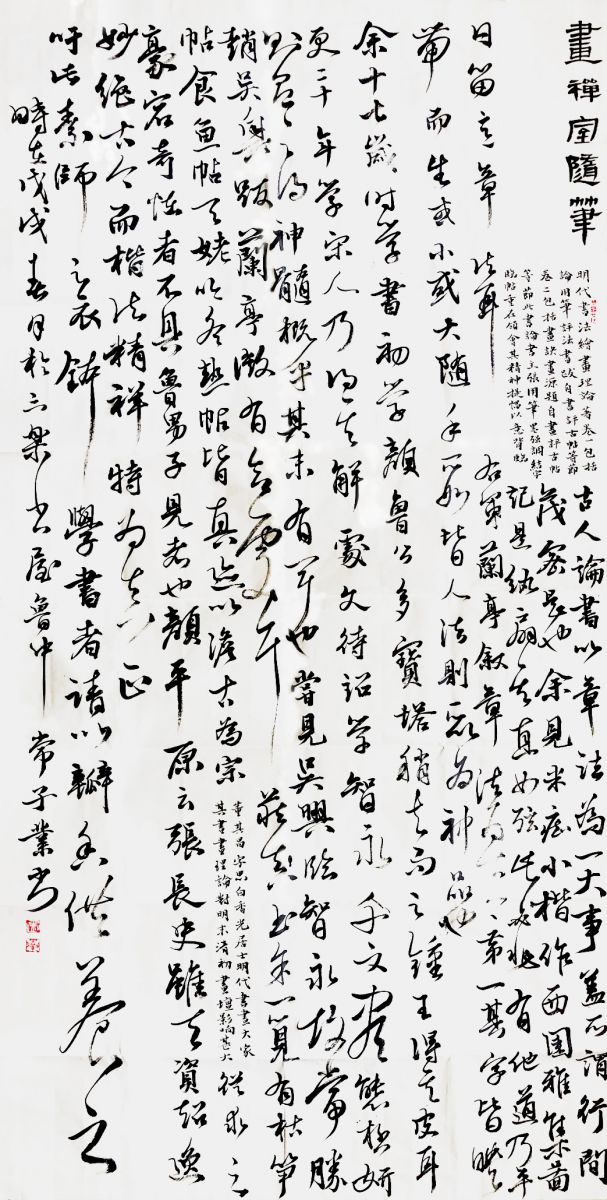 畫禪室隨筆
明代書法繪畫理論著卷一包括
論用筆評法書跋自書評古帖等節
卷二包括畫訣畫源題自畫評古帖
等節此書論書主張用筆墨強調結字
臨帖重在領會其精神提倡以意背臨
古人論書以章法為一大事蓋所謂行間
茂密是也余見米痴小楷作西園雅集圖
記是紈扇其直如弦此必非有他道乃平
日留意章法耳 右軍蘭亭敘章法為古今第一其字皆映
帶而生或小或大隨手所如皆入法則所以為神品也
余十七歲時學書初學顏魯公多寶塔稍去而之鍾王得其皮耳
更二十年學宋人乃得其解處文待詔學智永千文盡態極妍
則有之得神髓概乎其未有聞也嘗見吳興臨智永故當勝
趙吳興跋蘭亭微有合處耳 藏真書余一覽有枯筍
帖食魚帖天姥吟冬熱帖皆真跡以淡古為宗
董其昌字思白香光居士明代書畫大家
其書畫理論對明末清初畫壇影響甚大
從求之
豪宕奇怪者不具魯男子見者也顏平原云張長史雖天資超逸
妙絕古今而楷法精詳特為真正
吁此素師之衣缽學書者請以瓣香供養之
時在戊戌春月於三樂書屋魯中常子業書